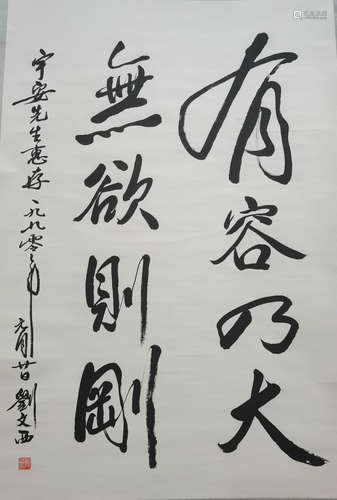 有容乃大
無欲則剛
宁安先生惠存一九九零年
元月廿日劉文西